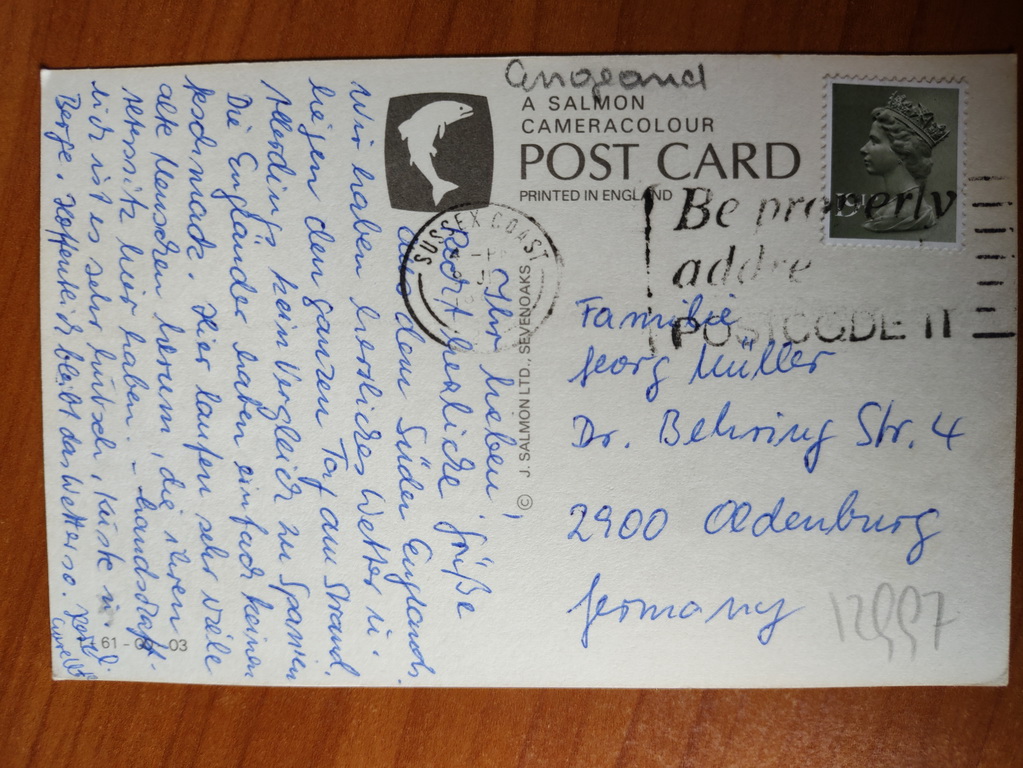 England
A SALMON
CAMERACOLOUR
POST CARD
PRINTED IN ENGLAND
SUSSEX COAST
Be properly
addre
POSTCODE IT
© J. SALMON LTD., SEVENOAKS
Ihr Lieben!
Recht herzliche Grüße
aus dem Süden Englands.
Wir haben herrliches Wetter u.
liegen den ganzen Tag am Strand.
Allerdings kein Vergleich zu Spanien
Die Engländer haben einfach keinen
Geschmack. Hier laufen sehr viele
alte Menschen herum, die ihren
Alterssitz hier haben. - Landschaft-
lich ist es sehr hübsch, Küste u.
Berge. Hoffentlich bleibt das Wetter so.
61 - 03
Familie
Georg Müller
Dr. Behring Str. 4
2900 Oldenburg
Germany
12997